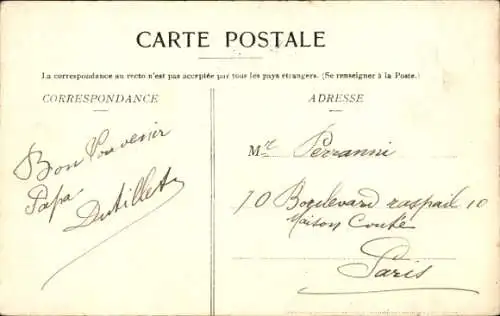 CARTE POSTALE
La correspondance au recto n'est pas acceptée par tous les pays étrangers. (Se renseigner à la Poste.)
CORRESPONDANCE
Bon Souvenir
Papa
Dutillet
ADRESSE
Mr Perranni
10 Boulevard raspail 10
Maison
Paris